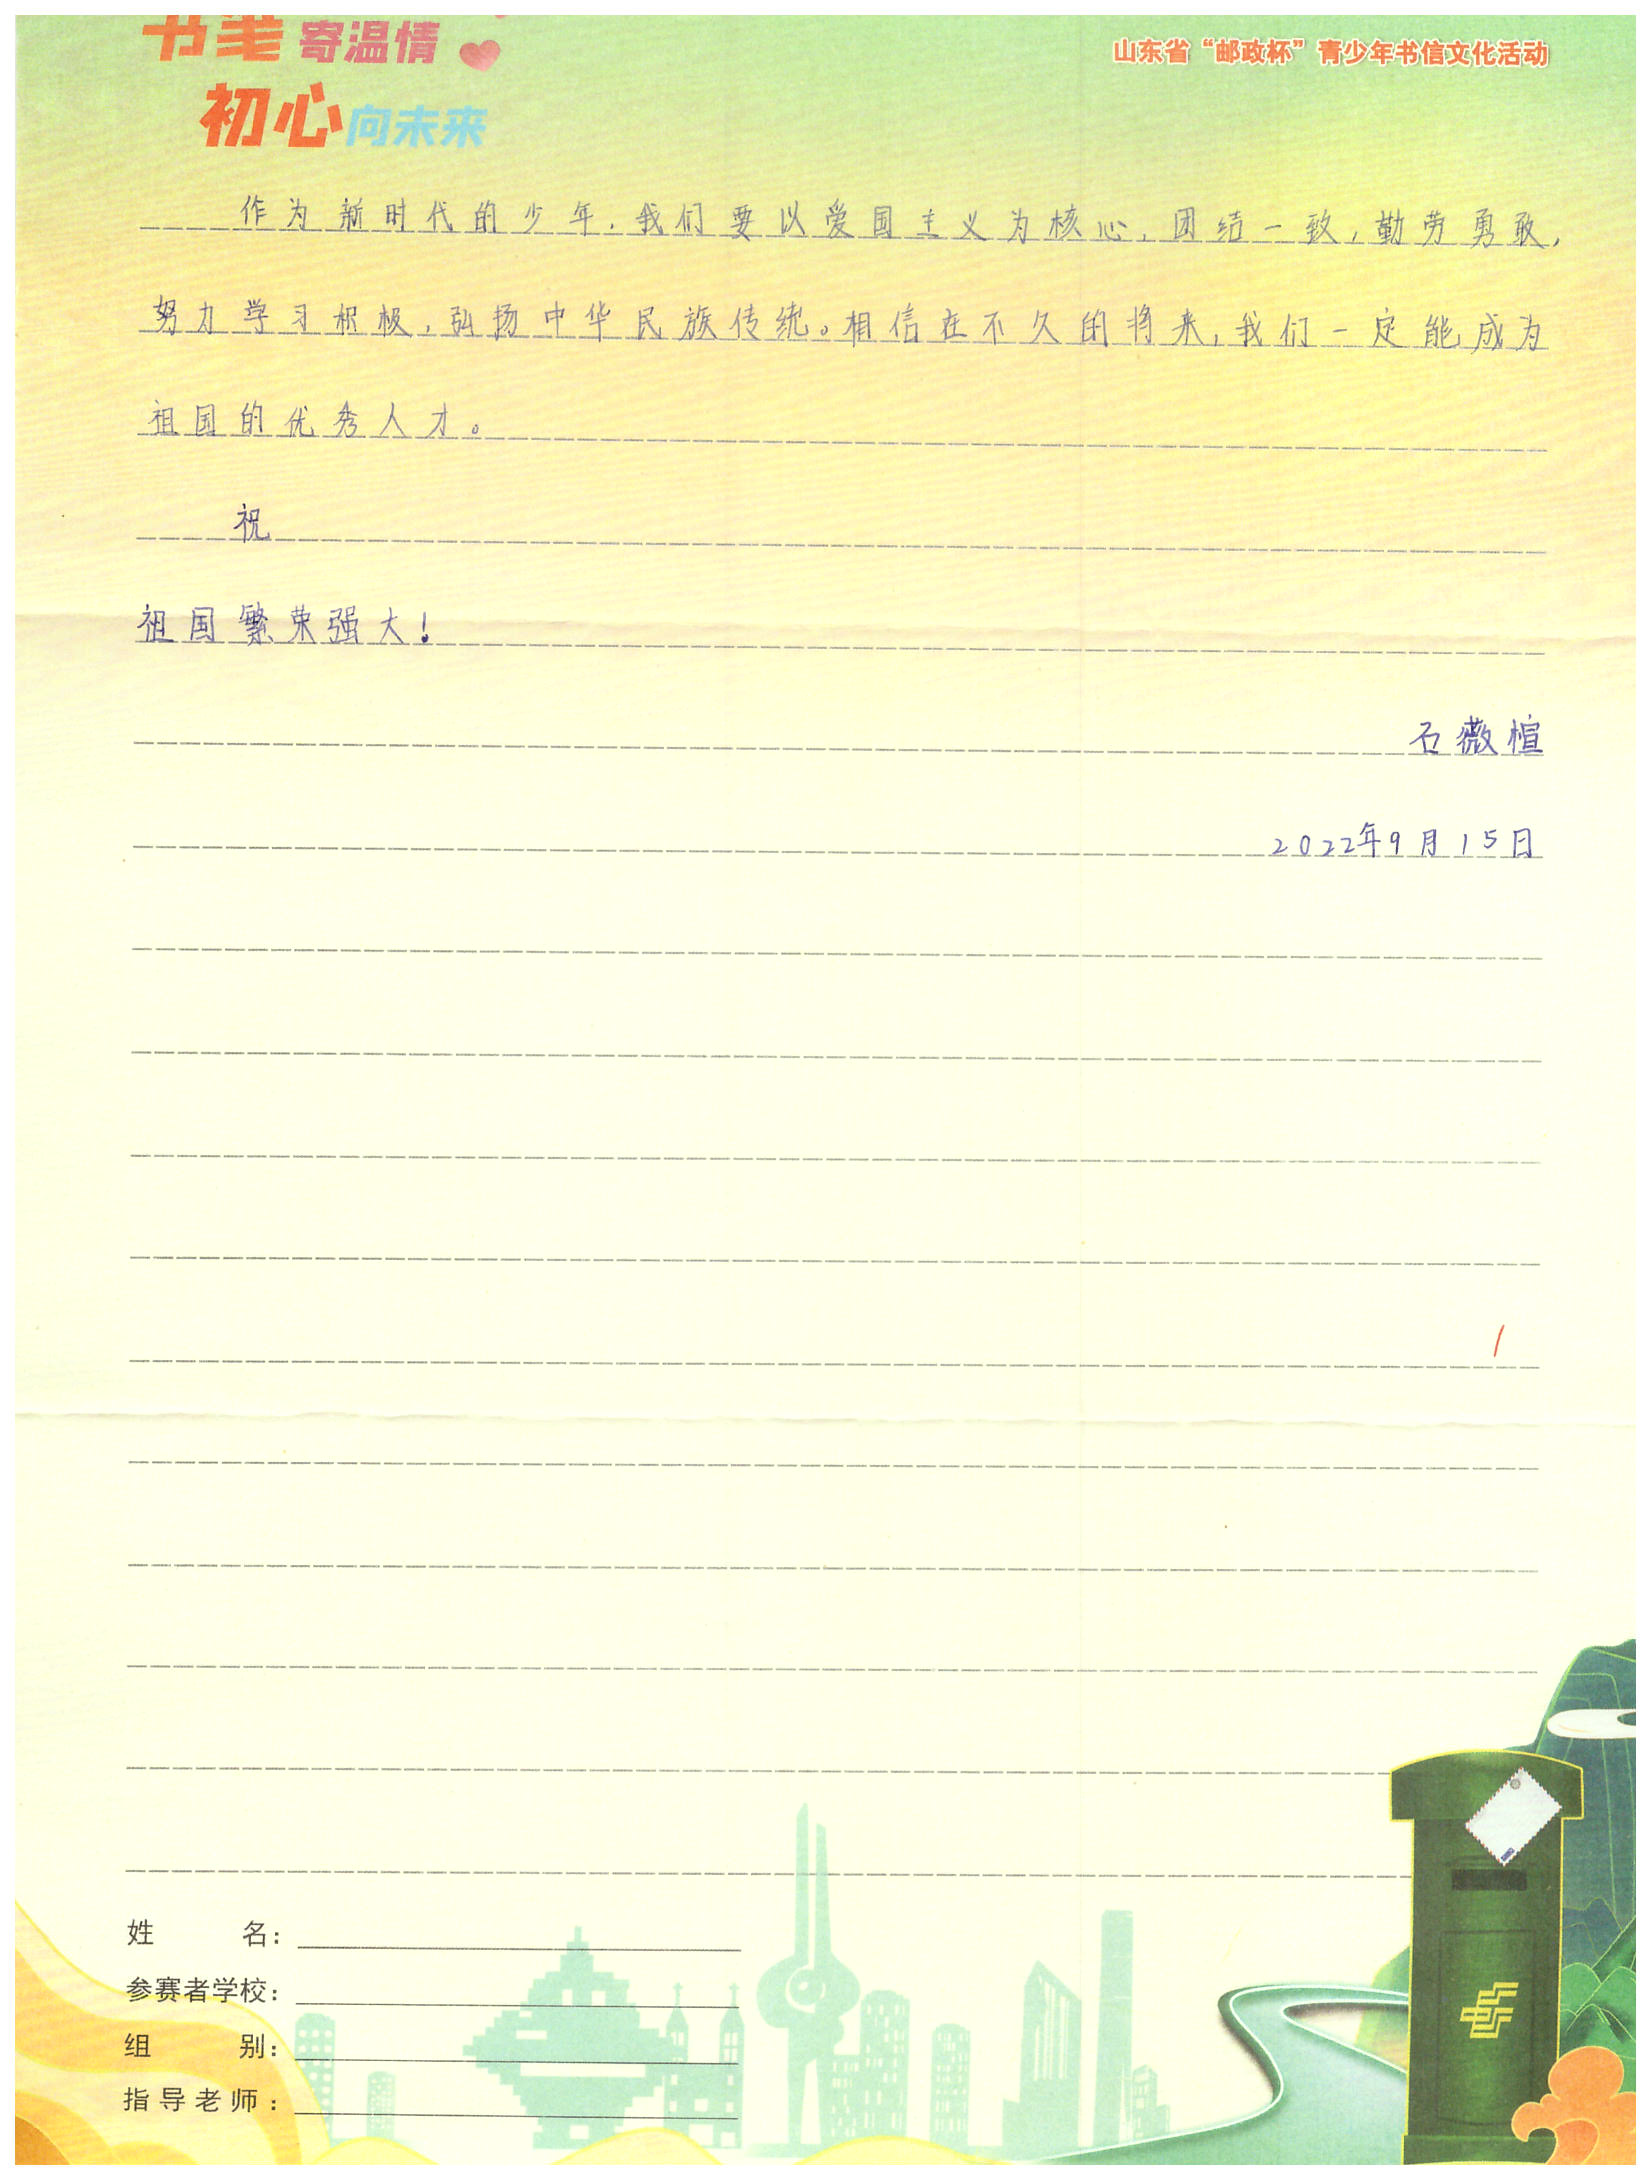 书笔寄温情
初心向未来
山东省“邮政杯”青少年书信文化活动
作为新时代的少年，我们要以爱国主义为核心，团结一致，勤劳勇敢，
努力学习积极，弘扬中华民族传统。相信在不久的将来，我们一定能成为
祖国的优秀人才。
祝
祖国繁荣强大！
石薇楦
2022年9月15日
姓名：
参赛者学校：
组别：
指导老师：